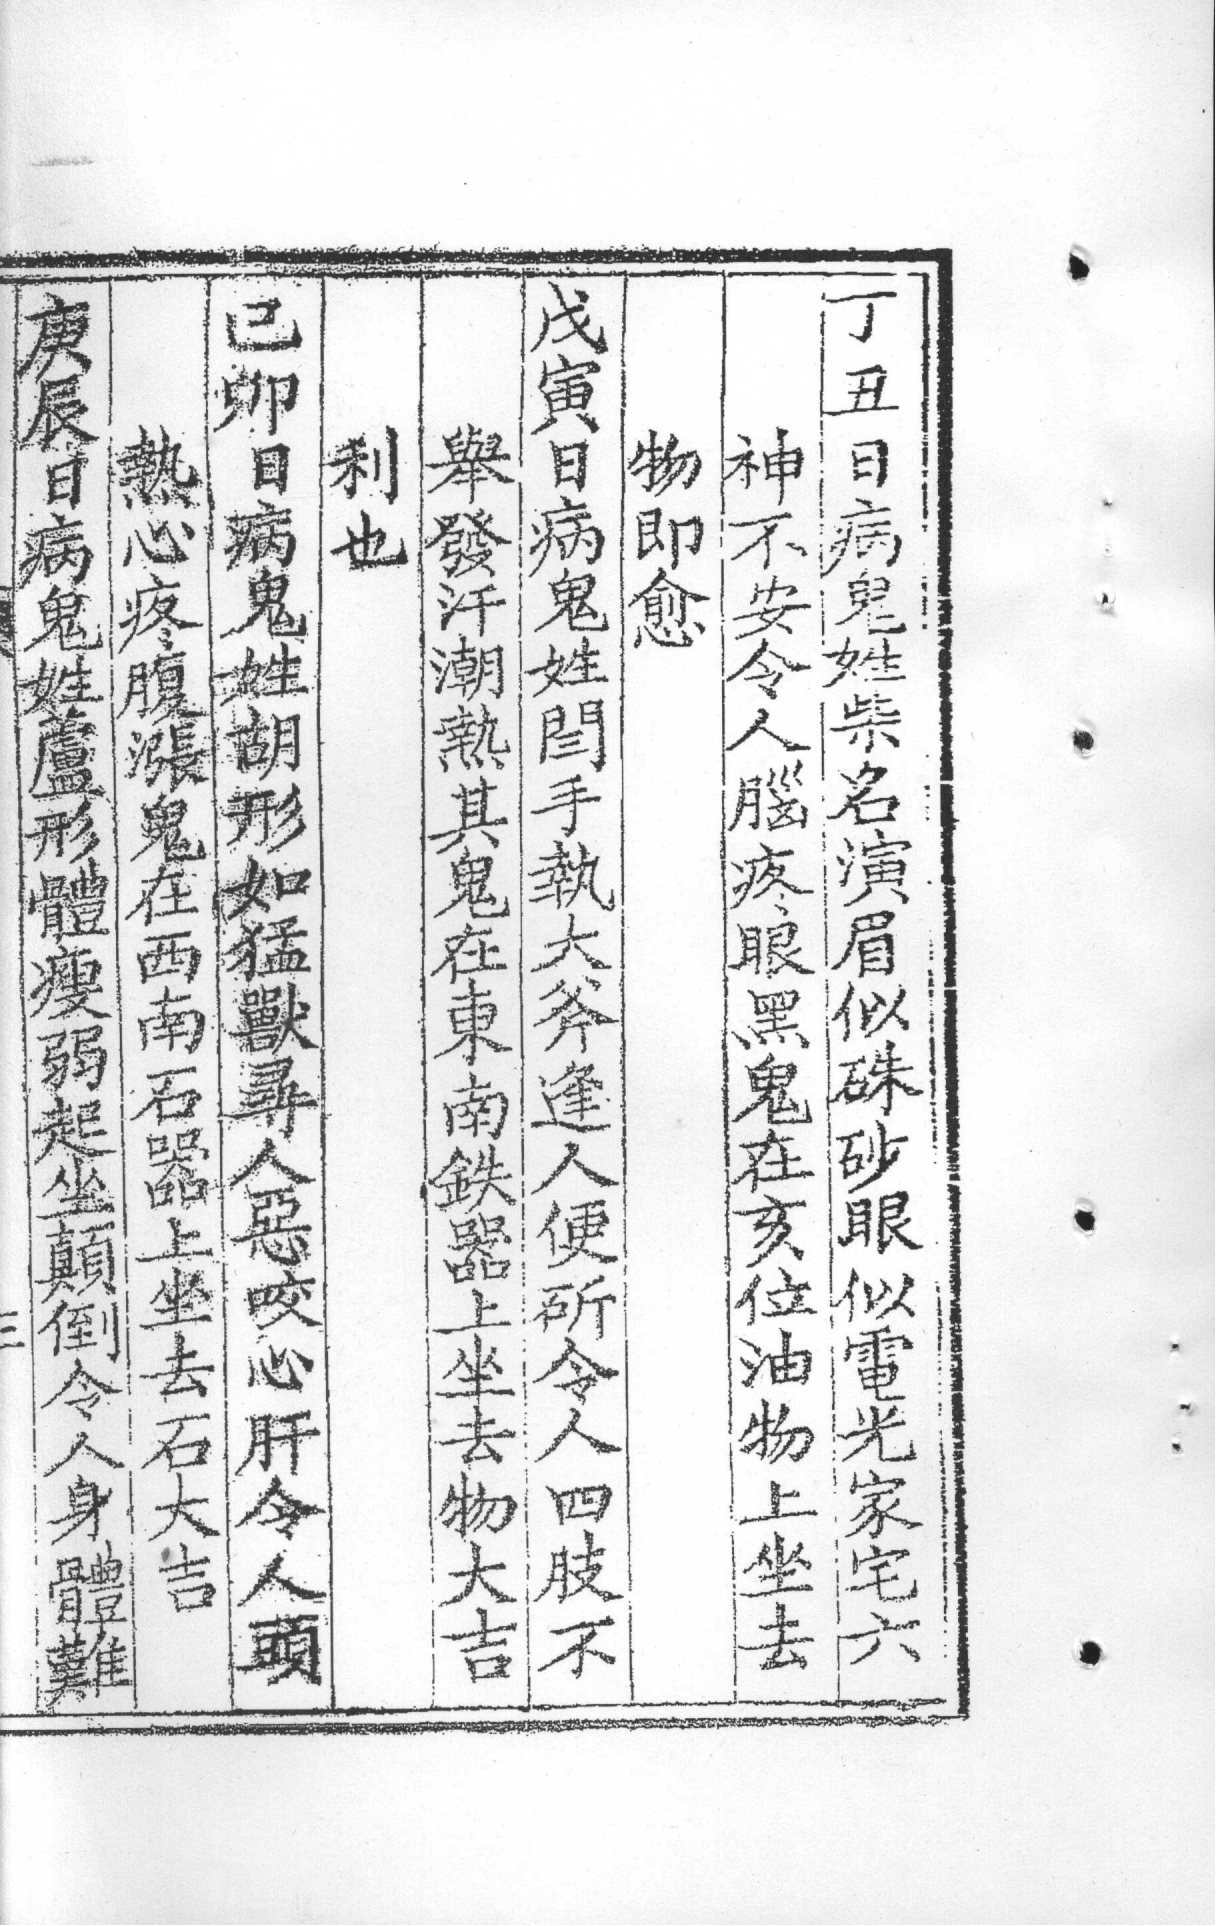 丁丑日病鬼姓柴名演眉似硃砂眼似電光家宅六
神不安令人腦疼眼黑鬼在亥位油物上坐去
物即愈
戊寅日病鬼姓閆手執大斧逢人便斫令人四肢不
舉發汗潮熱其鬼在東南鉄器上坐去物大吉
利也
己卯日病鬼姓胡形如猛獸尋人惡咬心肝令人頭
熱心疼腹漲鬼在西南石器上坐去石大吉
庚辰日病鬼姓蘆形體瘦弱起坐顛倒令人身體難
三